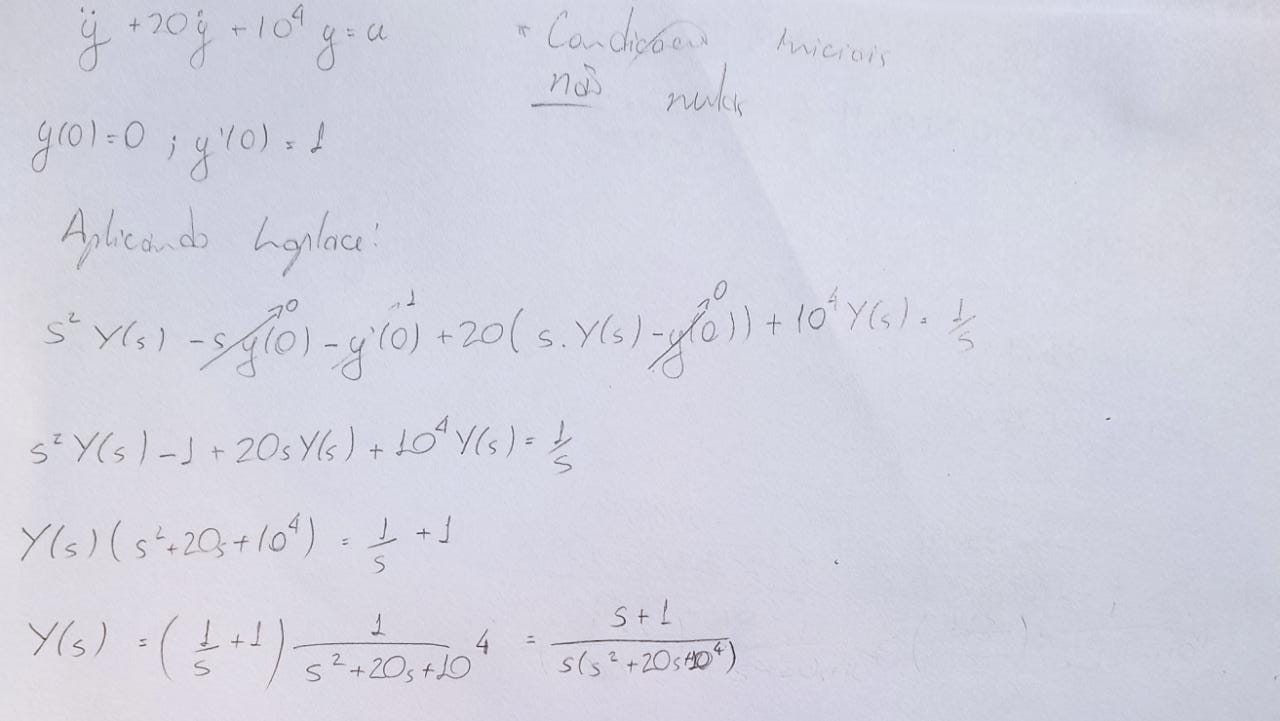 ÿ + 20ẏ + 10⁴ y = u * Condições Iniciais
não nulas
y(0) = 0 ; y'(0) = 1
Aplicando Laplace:
s² Y(s) - s y(0)→0 - y'(0)→1 + 20( s. Y(s) - y(0)→0)) + 10⁴ Y(s) = 1/s
s² Y(s) - 1 + 20s Y(s) + 10⁴ Y(s) = 1/s
Y(s) ( s² + 20s + 10⁴ ) = 1/s + 1
Y(s) = ( 1/s + 1 ) 1/(s² + 20s + 10⁴) = (s + 1)/(s(s² + 20s + 10⁴))